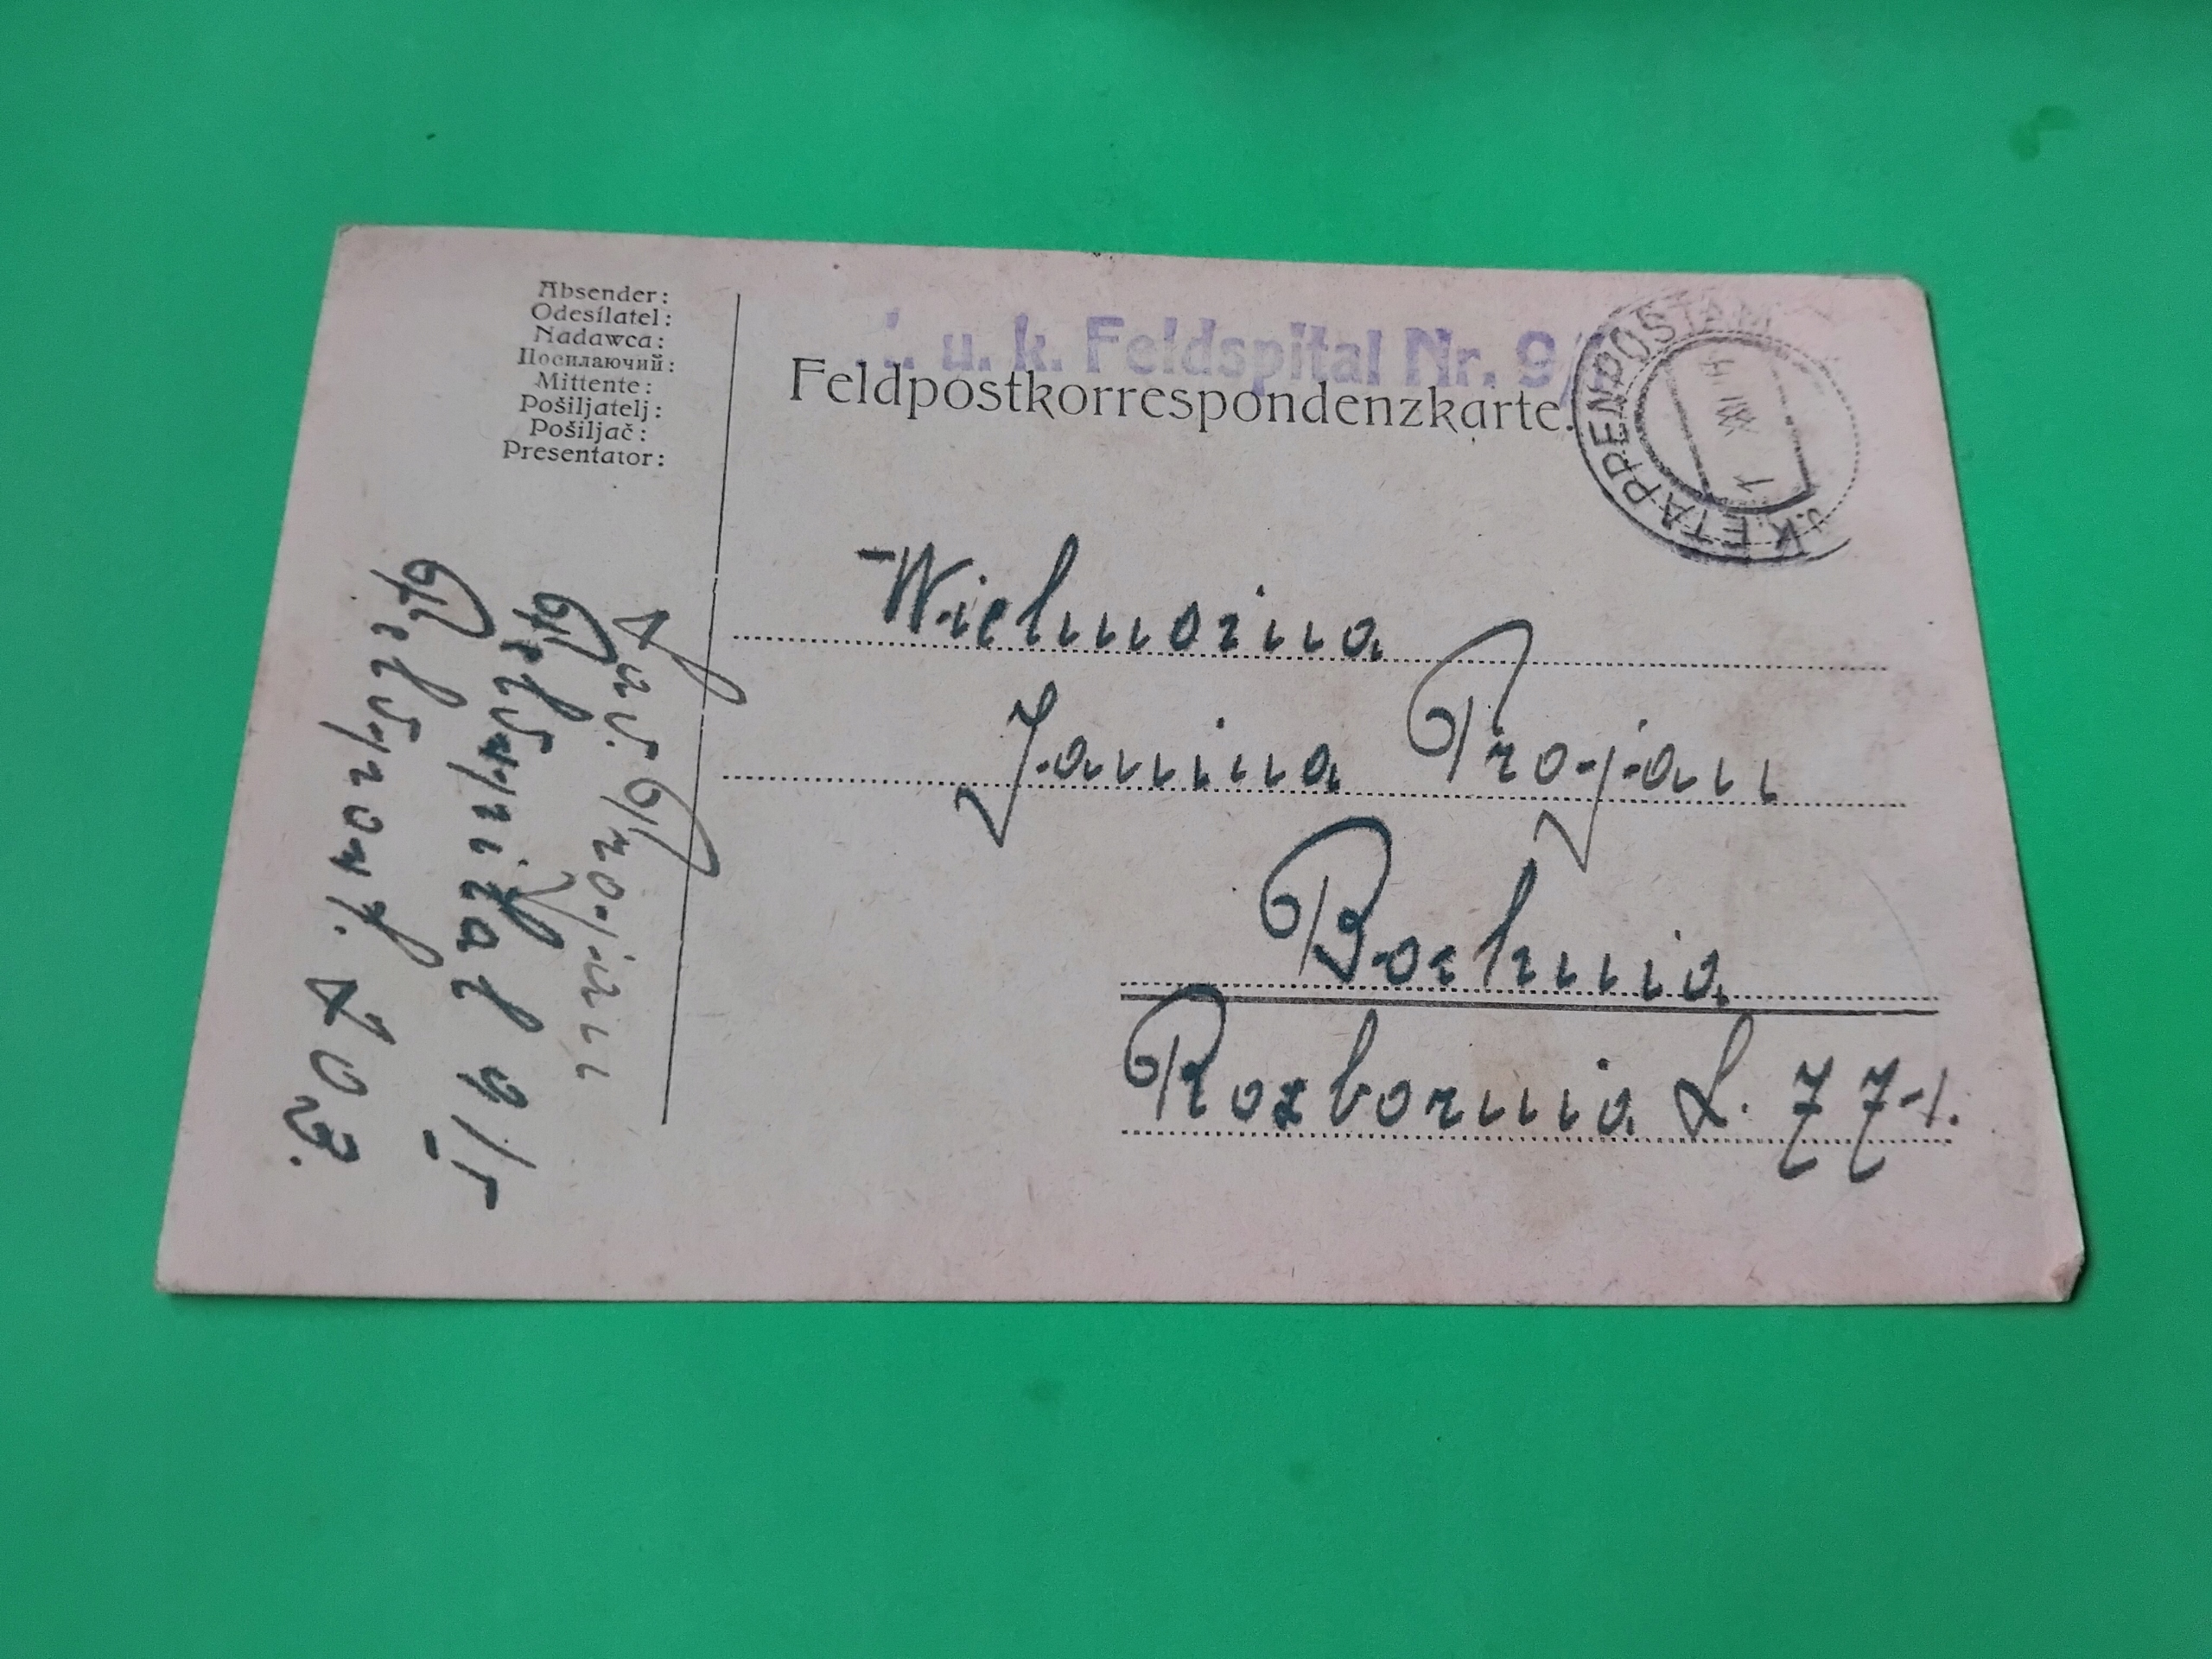 Absender:
Odesílatel:
Nadawca:
Посилаючий:
Mittente:
Pošiljatelj:
Pošiljač:
Presentator:
u. k. Feldspital Nr. 9/
Feldpostkorrespondenzkarte.
U.K. ETAPPENPOSTAM
XII
1
Wielmożna
Janina Trojan
Bochnia
Rozbornia L. 77
Trojan
Feldspital 9/5
Feldpost. 103.